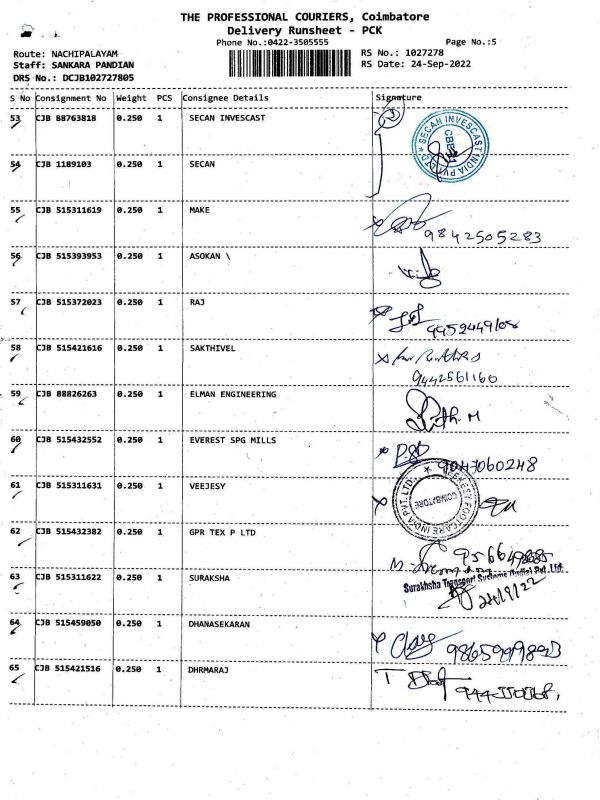 THE PROFESSIONAL COURIERS, Coimbatore
Delivery Runsheet - PCK
Phone No.:0422-3505555 Page No.:5
Route: NACHIPALAYAM RS No.: 1027278
Staff: SANKARA PANDIAN RS Date: 24-Sep-2022
DRS No.: DCJB102727805
S No Consignment No Weight PCS Consignee Details Signature
53 CJB 88763818 0.250 1 SECAN INVESCAST
SECAN INVESCAST INDIA PVT LTD
54 CJB 1189103 0.250 1 SECAN
55 CJB 515311619 0.250 1 MAKE
9842505283
56 CJB 515393953 0.250 1 ASOKAN \
57 CJB 515372023 0.250 1 RAJ
58 CJB 515421616 0.250 1 SAKTHIVEL
9442561160
59 CJB 88826263 0.250 1 ELMAN ENGINEERING
60 CJB 515432552 0.250 1 EVEREST SPG MILLS
9047060248
61 CJB 515311631 0.250 1 VEEJESY
FOOTCARE INDIA PVT. LTD.
COIMBATORE
62 CJB 515432382 0.250 1 GPR TEX P LTD
63 CJB 515311622 0.250 1 SURAKSHA
Surakhsha Transport Systems Pvt. Ltd.
24/9/22
64 CJB 515459050 0.250 1 DHANASEKARAN
65 CJB 515421516 0.250 1 DHRMARAJ